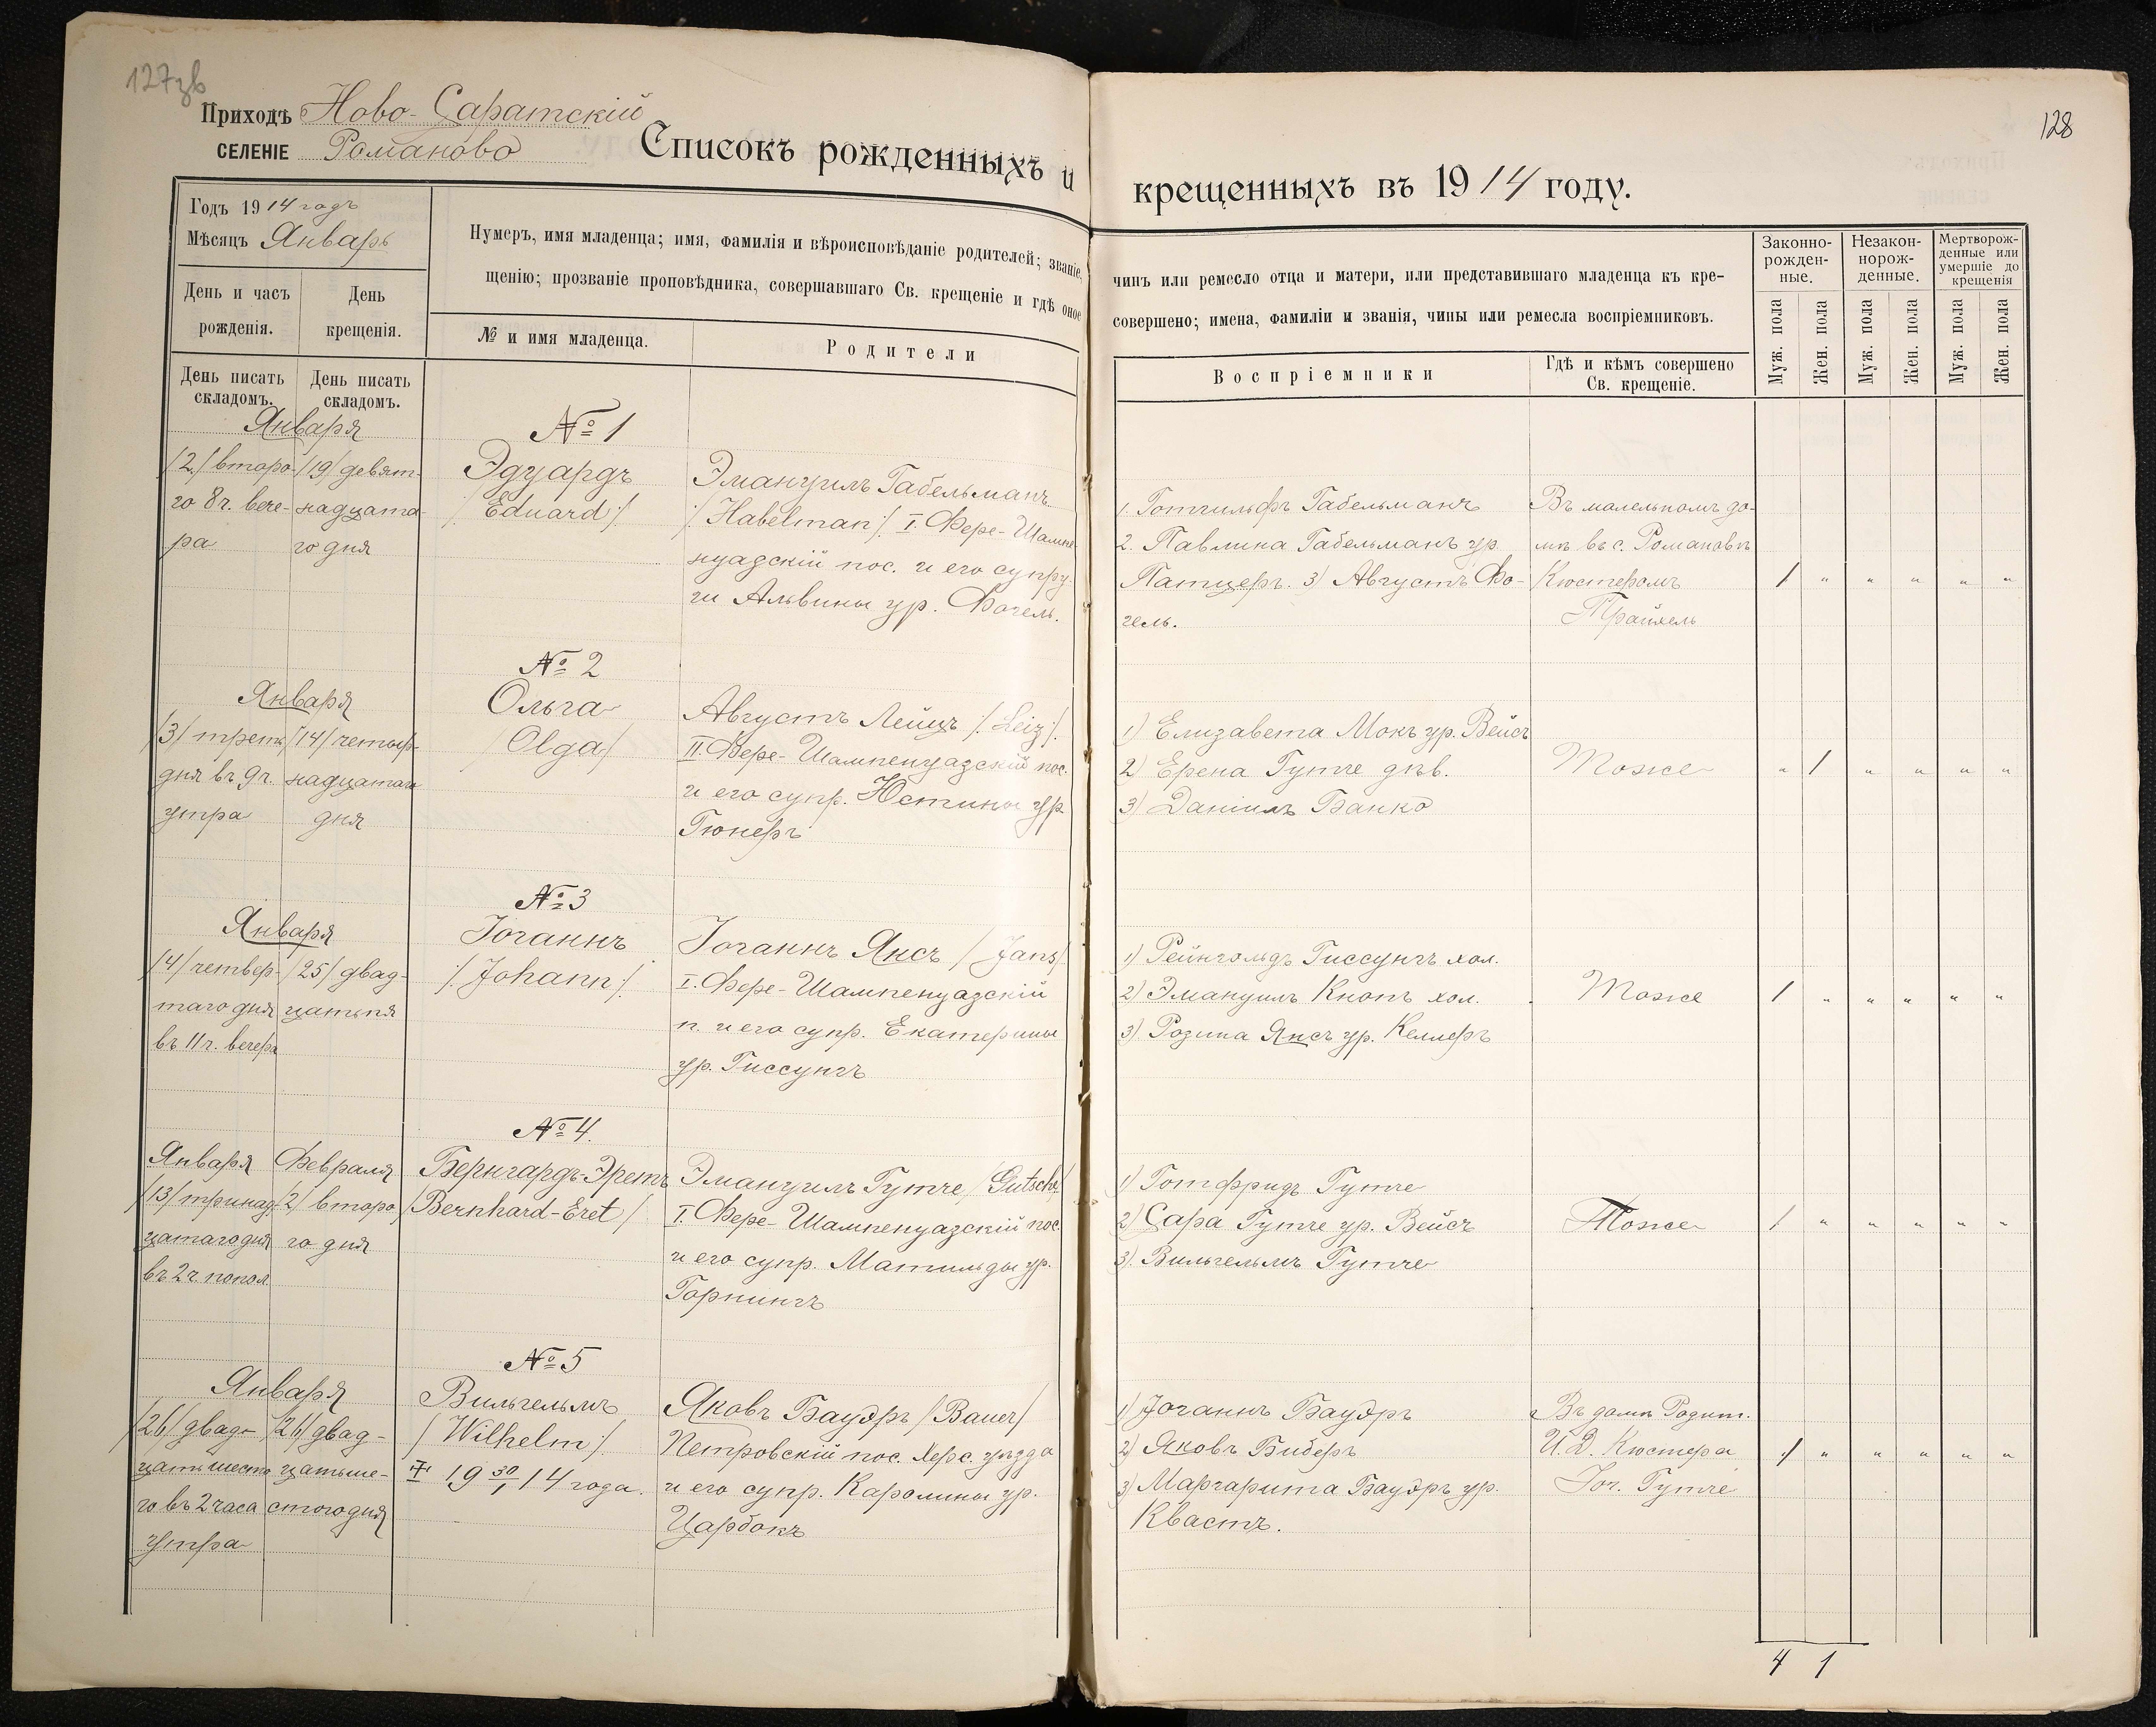 127зв
128
Приходъ Ново-Саратскій
СЕЛЕНІЕ Романово
Списокъ рожденныхъ и крещенныхъ въ 1914 году.
Годъ 1914 годъ
Мѣсяцъ Январь
День и часъ рожденія.
День крещенія.
Нумеръ, имя младенца; имя, фамилія и вѣроисповѣданіе родителей; званіе, чинъ или ремесло отца и матери, или представившаго младенца къ кре-
щенію; прозваніе проповѣдника, совершавшаго Св. крещеніе и гдѣ оное совершено; имена, фамиліи и званія, чины или ремесла воспріемниковъ.
№ и имя младенца.
Родители
Воспріемники
Гдѣ и кѣмъ совершено
Св. крещеніе.
Законно-
рожден-
ные.
Незакон-
норож-
денные.
Мертворож-
денные или
умершіе до
крещенія
Муж. пола
Жен. пола
Муж. пола
Жен. пола
Муж. пола
Жен. пола
День писать
складомъ.
День писать
складомъ.
Января
/2/ второ-
го 8 ч. вече-
ра
/19/ девят-
надцата-
го дня
№ 1
Эдуардъ
/Eduard/.
Эмануилъ Габельманъ
/Habelman/. I. Фере-Шампе-
нуазскій пос. и его супру-
ги Альвины ур. Фогель.
1. Готгильфъ Габельманъ
2. Павлина Габельманъ ур.
Патцеръ. 3) Августъ Фо-
гель.
Въ молельномъ до-
мѣ въ с. Романовкѣ
Кюстеромъ
1 " " " " "
№ 2
Января
/3/ треть
дня въ 9 ч.
утра
/14/ четыр-
надцатаго
дня
Ольга
/Olga/
Августъ Лейцъ /. Leiz/.
II. Фере-Шампенуазскій пос.
и его супр. Юстины ур.
Гюнеръ
1) Елизавета Мокъ ур. Вейсъ
2) Ерена Гутче дѣв.
3) Даніилъ Банко
Тоже
" 1 " " " "
№ 3
Января
/4/ четвер-
таго дня
въ 11 ч. вечера
/25/ двад-
цатьпя
Іоганнъ
/. Johann/.
Іоганнъ Янсъ /Jans/
I. Фере-Шампенуазскій
п. и его супр. Екатерины
ур. Гиссунгъ
1) Рейнгольдъ Гиссунгъ хол.
2) Эмануилъ Кнопъ хол.
3) Розина Янсъ ур. Келлеръ
Тоже
1 " " " " "
№ 4.
Января
/13/ тринад-
цатаго дня
въ 2 ч. попол.
Февраля
/2/ второ
го дня
Бернгардъ-Эретъ
/Bernhard-Eret/
Эмануилъ Гутче /Gutsche/
I. Фере-Шампенуазскій пос.
и его супр. Матильды ур.
Горнингъ
1) Готфридъ Гутче
2) Сара Гутче ур. Вейсъ
3) Вильгельмъ Гутче
Тоже
1 " " " " "
№ 5
Января
/26/ двад-
цатьшесто
го въ 2 часа
утра
/26/ двад-
цатьше-
стого дня
Вильгельмъ
/Wilhelm/.
19 30/1 14 года.
Яковъ Бауэръ /Bauer/
Петровскій пос. Херс. уѣзда
и его супр. Каролины ур.
Царбокъ
1) Іоганнъ Бауэръ
2) Яковъ Биберъ
3) Маргарита Бауэръ ур.
Квастъ.
Въ домѣ Родит.
И. Д. Кюстера
Іог. Гутче
1 " " " " "
4 1